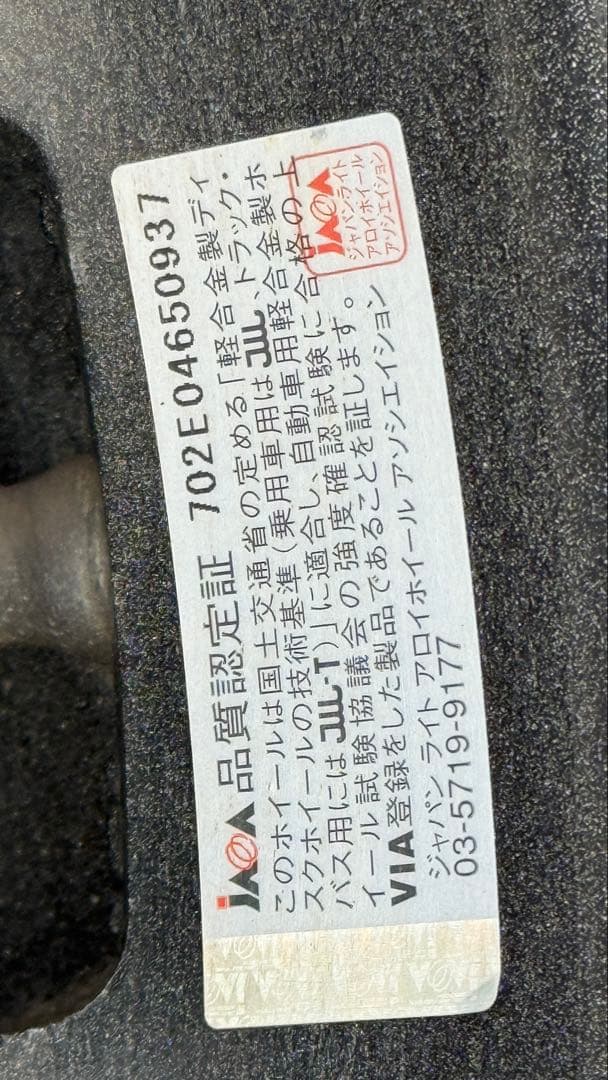 JAWA品質認定証 702E04650937
このホイールは国土交通省の定める「軽合金製ディ
スクホイールの技術基準(乗用車用はJWL、トラック・
バス用にはJWL-T)」に適合し、自動車用軽合金製ホ
イール試験協議会の強度確認試験に合格の上
VIA登録をした製品であることを証します。
ジャパン ライト アロイホイール アソシエイション
03-5719-9177
JAWA
ジャパンライト
アロイホイール
アソシエイション